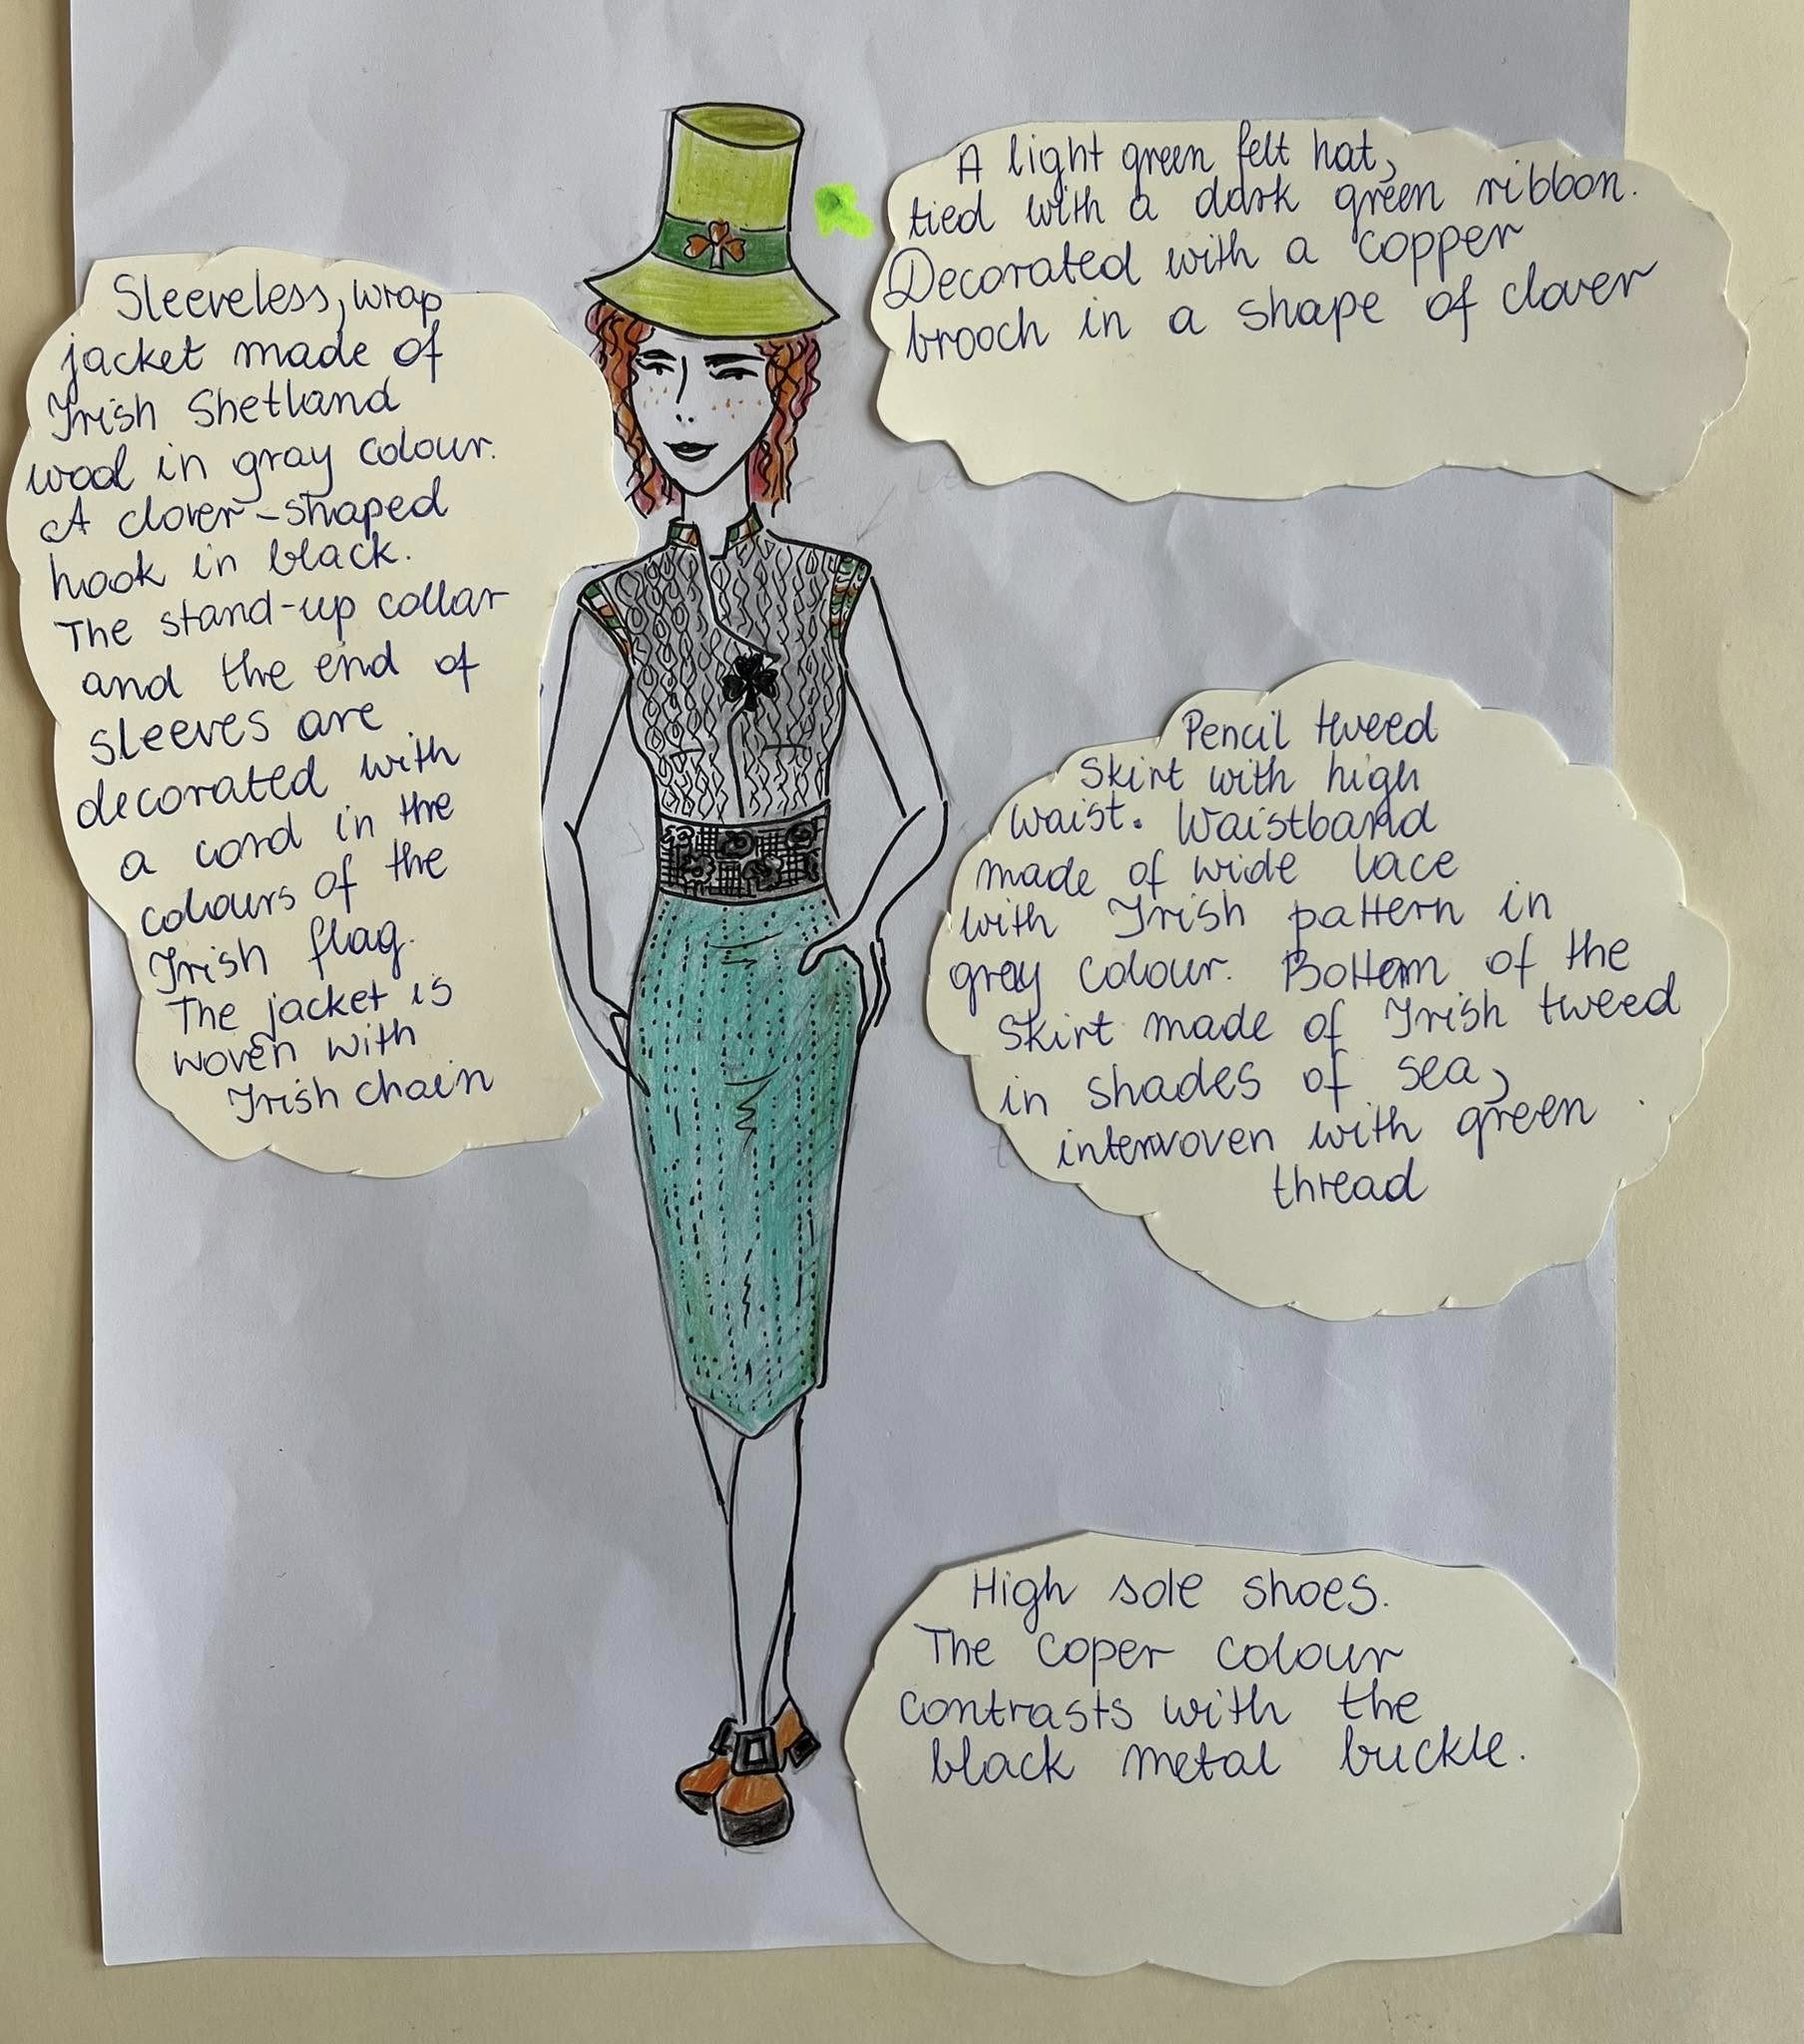 A light green felt hat,
tied with a dark green ribbon.
Decorated with a copper
brooch in a shape of clover
Sleeveless, wrap
jacket made of
Irish Shetland
wool in gray colour.
A clover-shaped
hook in black.
The stand-up collar
and the end of
sleeves are
decorated with
a cord in the
colours of the
Irish flag.
The jacket is
woven with
Irish chain
Pencil tweed
skirt with high
waist. Waistband
made of wide lace
with Irish pattern in
gray colour. Bottom of the
skirt made of Irish tweed
in shades of sea,
interwoven with green
thread
High sole shoes.
The coper colour
contrasts with the
black metal buckle.